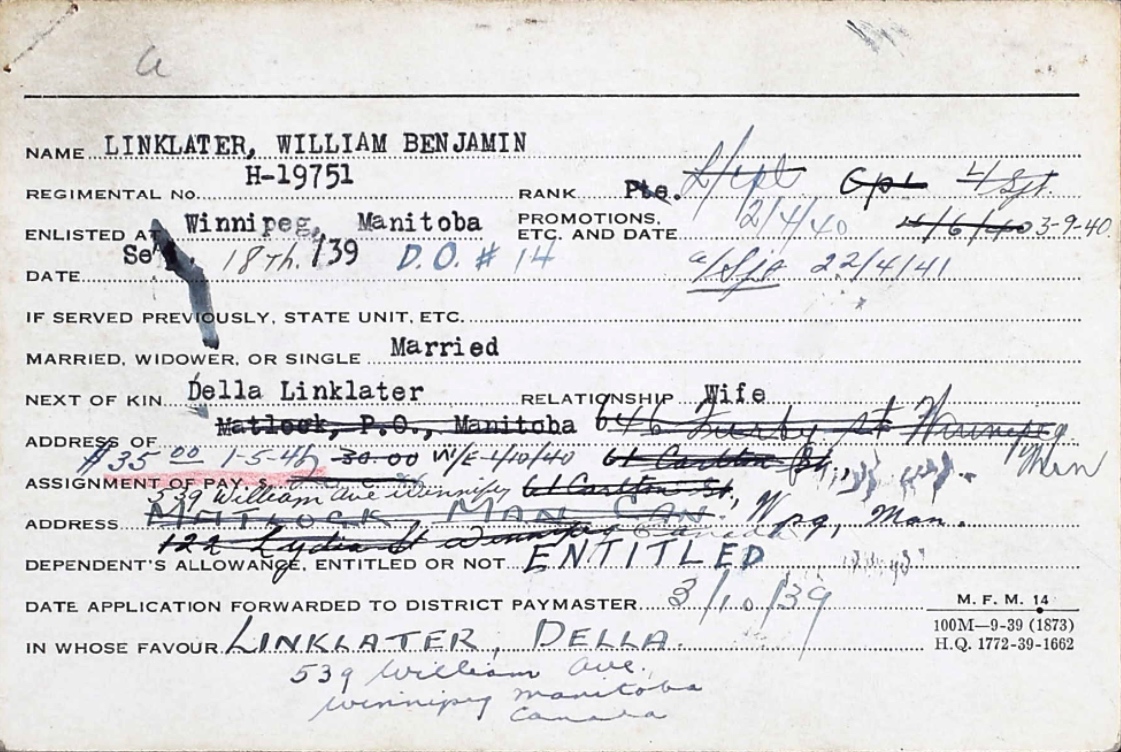 a
NAME LINKLATER, WILLIAM BENJAMIN
REGIMENTAL No. H-19751 RANK Pte. L/cpl Cpl L/Sjt.
ENLISTED AT Winnipeg, Manitoba PROMOTIONS, ETC. AND DATE 2/4/40 4/6/40 3-9-40
DATE 18th. /39 D.O. # 14 a/Sjt 22/4/41
IF SERVED PREVIOUSLY, STATE UNIT, ETC.
MARRIED, WIDOWER, OR SINGLE Married
NEXT OF KIN Della Linklater RELATIONSHIP Wife
ADDRESS OF Matlock, P.O., Manitoba 646 Furby St Winnipeg Man
$35 00 1-5-45 30.00 W/E 1/10/40 61 Carlton St.,
ASSIGNMENT OF PAY $
539 William Ave Winnipeg 61 Carlton St., Wpg, Man.
ADDRESS MATLOCK MAN CAN.
122 Lydia St Winnipeg Canada
DEPENDENT'S ALLOWANCE, ENTITLED OR NOT ENTITLED
DATE APPLICATION FORWARDED TO DISTRICT PAYMASTER 3/10/39
IN WHOSE FAVOUR LINKLATER, DELLA.
539 William Ave.
Winnipeg Manitoba
Canada
M. F. M. 14
100M—9-39 (1873)
H.Q. 1772-39-1662